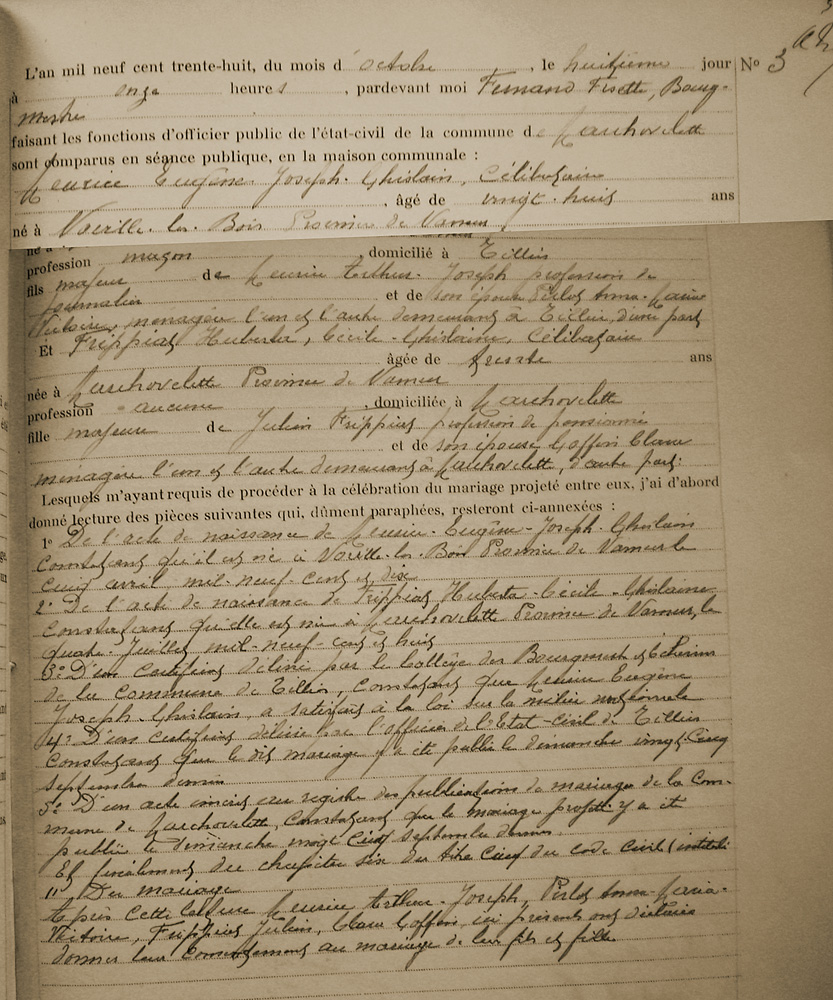 L'an mil neuf cent trente-huit, du mois d'octobre, le huitième jour No 3
à onze heures, pardevant moi Fernand Fisette, Bourg-
mestre
faisant les fonctions d'officier public de l'état-civil de la commune de Marchovelette
sont comparus en séance publique, en la maison communale :
Meurice Eugène Joseph-Ghislain, Célibataire
, âgé de vingt-huit ans
né à Noville-les-Bois Province de Namur
profession maçon domicilié à Tillier
fils majeur de Meurice Arthur-Joseph profession de
journalier et de son épouse Pirlot Anna-Maria
Victoire, ménagère l'un et l'autre demeurant à Tillier, d'une part
Et Frippiat Huberta, Cécile-Ghislaine, Célibataire
âgée de trente ans
née à Marchovelette Province de Namur
profession aucune, domiciliée à Marchovelette
fille majeure de Julien Frippiat profession de pensionné
et de son épouse Goffin Clara
ménagère l'un et l'autre demeurant à Marchovelette, d'autre part.
Lesquels m'ayant requis de procéder à la célébration du mariage projeté entre eux, j'ai d'abord
donné lecture des pièces suivantes qui, dûment paraphées, resteront ci-annexées :
1° De l'acte de naissance de Meurice-Eugène-Joseph-Ghislain
constatant qu'il est né à Noville-les-Bois Province de Namur le
cinq avril mil-neuf-cent et dix
2° De l'acte de naissance de Frippiat Huberta-Cécile-Ghislaine
constatant qu'elle est née à Marchovelette Province de Namur, le
quatre Juillet mil-neuf-cent et huit
3° D'un certificat délivré par le Collège des Bourgmestre et Echevins
de la commune de Tillier, constatant que Meurice Eugène
Joseph-Ghislain, a satisfait à la loi sur la milice nationale
4° D'un certificat délivré par l'officier de l'Etat-civil de Tillier
constatant que le dit mariage y a été publié le dimanche vingt-cinq
septembre dernier
5° D'un acte inscrit au registre des publications de mariages de la Com-
mune de Marchovelette, constatant que le mariage projeté y a été
publié le dimanche vingt cinq septembre dernier.
Et finalement du chapitre six du titre cinq du code civil intitulé
" Du mariage
Après cette lecture Meurice Arthur-Joseph, Pirlot Anna-Maria-
Victoire, Frippiat Julien, Clara Goffin, ici présents ont déclaré
donner leur consentement au mariage de leur fils et fille